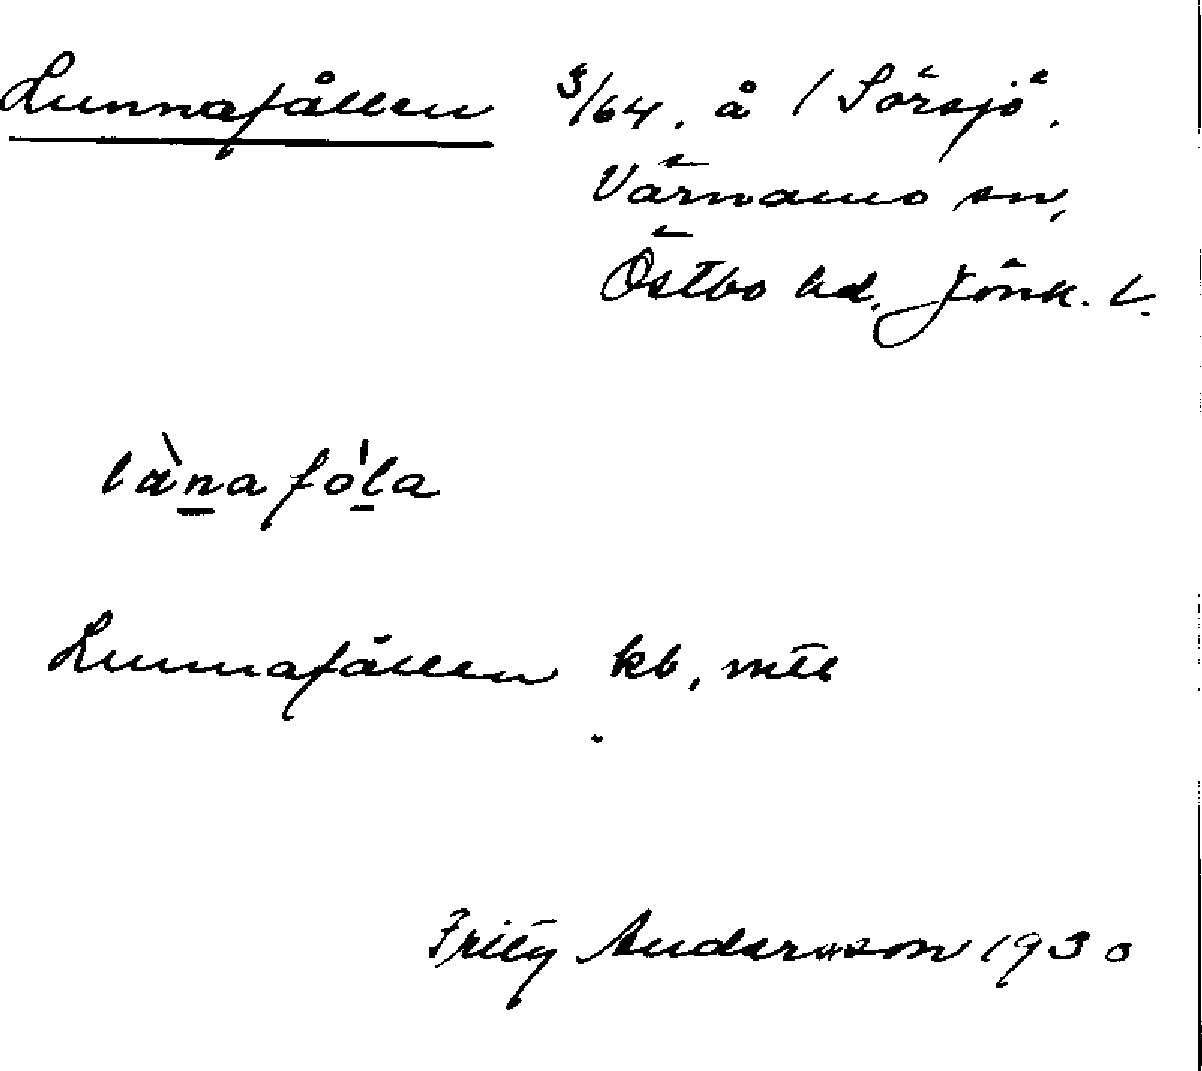 Lunnafållen 3/64. å 1 Sörsjö.
Värnamo sn,
Östbo hd. Jönk. L.
làna fó'la
Lunnafållen kb, mtl
Fritz Andersson 1930